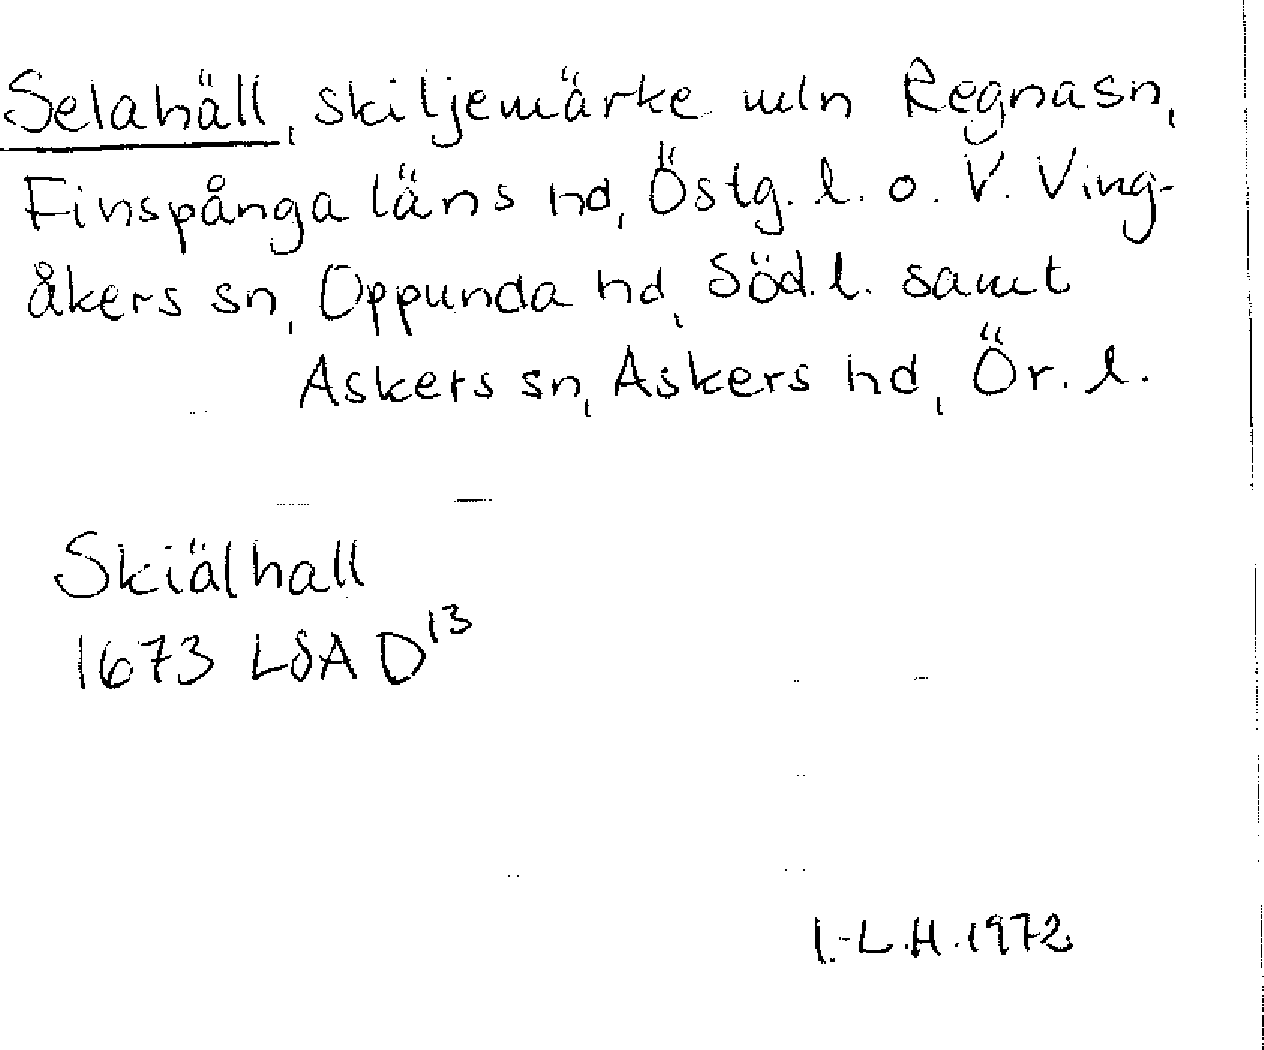 Selahäll, skiljemärke mln Regna sn,
Finspånga läns hd, Östg. l. o. V. Ving-
åkers sn, Oppunda hd, Söd. l. samt
Askers sn, Askers hd, Ör. l.
Skiälhall
1673 LSA D13
I.-L.H. 1972